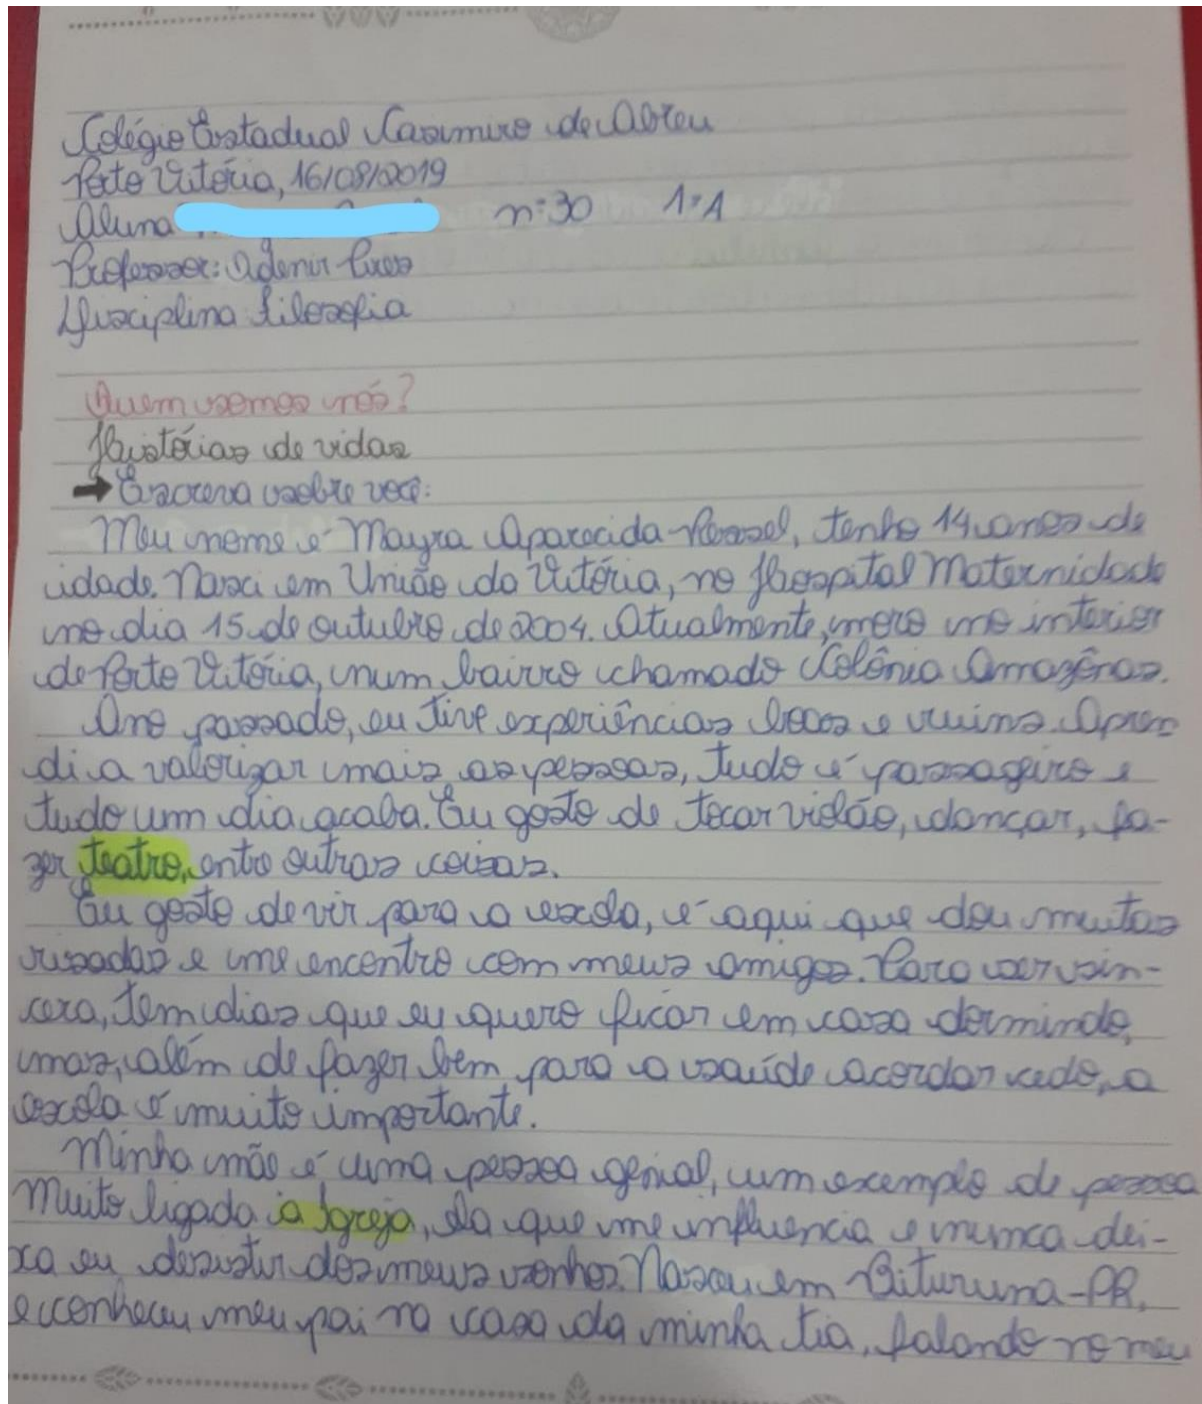 Colégio Estadual Casimiro de Abreu
Porto Vitória, 16/08/2019
Aluna n:30 1ºA
Professor: Adenir Pires
Disciplina Filosofia
Quem somos nós?
Histórias de vidas
→ Escreva sobre você:
Meu nome é Mayra Aparecida , tenho 14 anos de
idade. Nasci em União da Vitória, no Hospital Maternidade
no dia 15 de outubro de 2004. Atualmente, moro no interior
de Porto Vitória, num bairro chamado Colônia Amazônas.
Ano passado, eu tive experiências boas e ruins. Apren-
di a valorizar mais as pessoas, tudo é passageiro e
tudo um dia acaba. Eu gosto de tocar violão, dançar, fa-
zer teatro, entre outras coisas.
Eu gosto de vir para a escola, é aqui que dou muitas
risadas e me encontro com meus amigos. Para ser sin-
cera, tem dias que eu quero ficar em casa dormindo,
mas, além de fazer bem para a saúde acordar cedo, a
escola é muito importante.
Minha mãe é uma pessoa genial, um exemplo de pessoa
Muito ligada a Igreja, ela que me influencia e nunca dei-
xa eu desistir dos meus sonhos. Nasceu em Bituruna-PR,
e conheceu meu pai na casa da minha tia, falando no meu